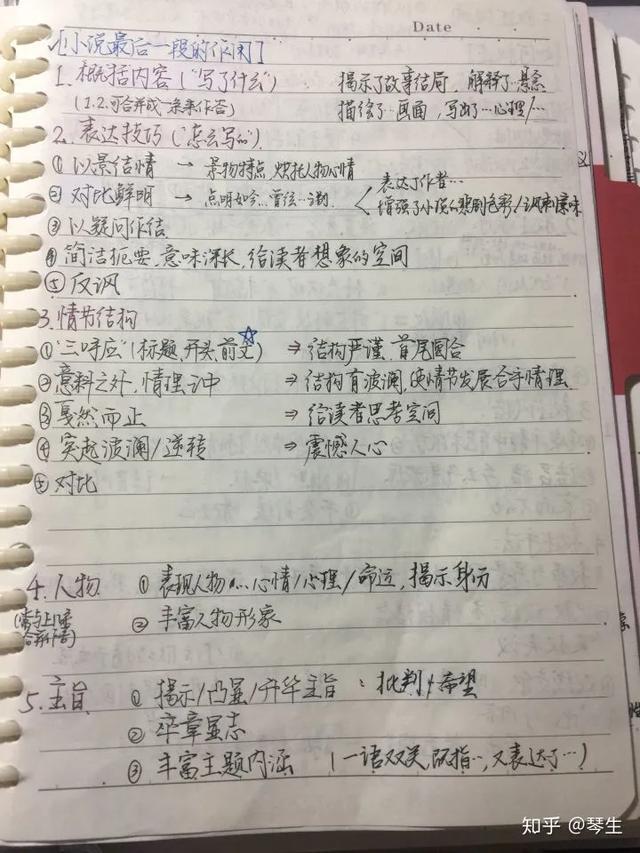 Date
[小说最后一段的作用]
1. 概括内容("写了什么") 揭示了故事结局,解释了…悬念
(1.2.可合并成一条来作答) 描绘了…画面,写出了…心理/…
2. 表达技巧("怎么写的").
① 以景结情 → 景物特点 烘托人物心情
② 对比鲜明 → 点明如今…曾经… 表达了作者…
增强了小说的悲剧色彩/讽刺意味
③ 以疑问作结
④ 简洁扼要,意味深长,给读者想象的空间
⑤ 反讽
3. 情节结构
① "三呼应"(标题、开头、前文) ⇒ 结构严谨、首尾圆合
② 意料之外,情理之中 ⇒ 结构有波澜,使情节发展合乎情理
③ 戛然而止 ⇒ 给读者思考空间
④ 突起波澜/逆转 ⇒ 震憾人心
⑤ 对比
4. 人物 ① 表现人物…心情/心理/命运,揭示身份
② 丰富人物形象
5. 主旨 ① 揭示/凸显/升华主旨:批判+希望
② 卒章显志
③ 丰富主题内涵 (一语双关,既指…,又表达了…)
知乎 @琴生